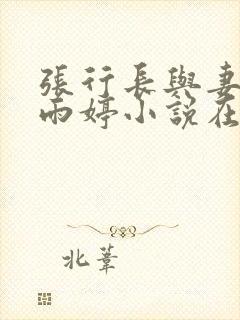 張行長與妻
雨婷小說在
北葦